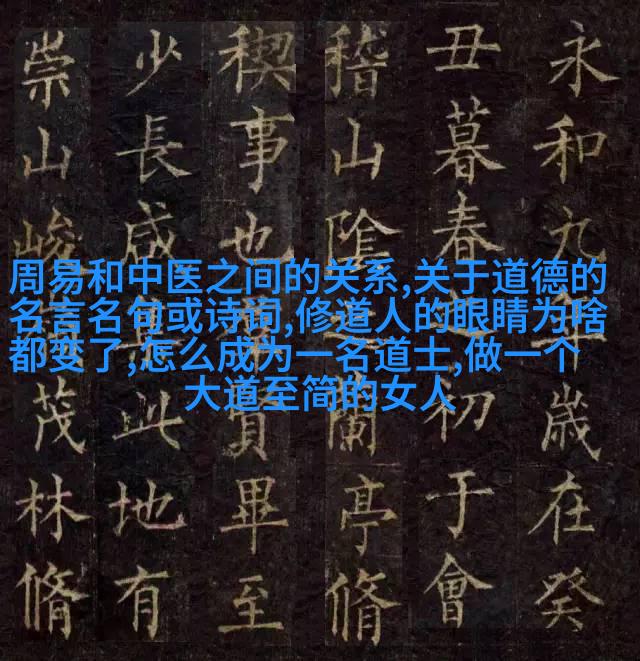 周易和中医之间的关系,关于道德的
名言名句或诗词,修道人的眼睛为啥
都变了,怎么成为一名道士,做一个
大道至简的女人
永和九年歲在癸
丑暮春之初于會
稽山陰之蘭亭脩
稧事也賢畢至
少長咸集此地有
崇山峻茂林脩